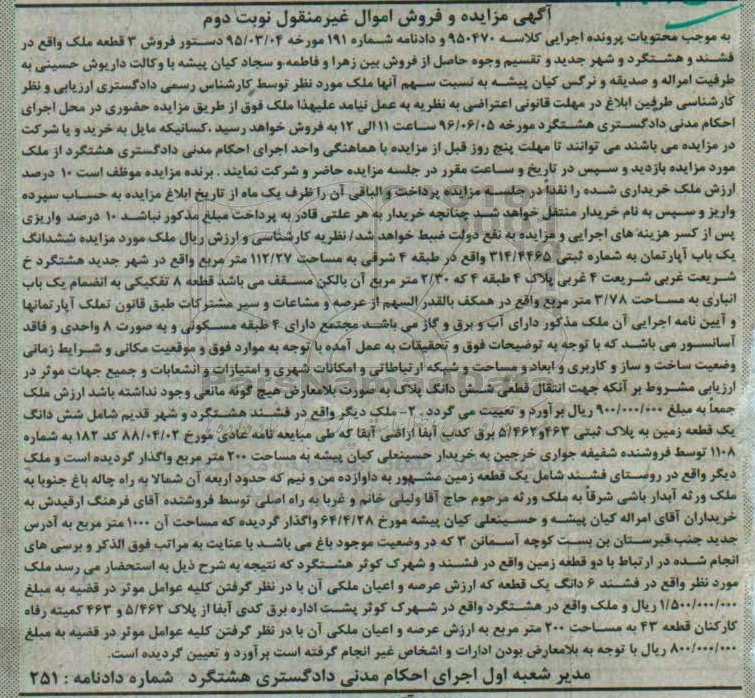 آگهی مزایده و فروش اموال غیرمنقول نوبت دوم
به موجب محتویات پرونده اجرایی کلاسه ۹۵۰۴۷۰ و دادنامه شماره ۱۹۱ مورخه ۹۵/۰۳/۰۴ دستور فروش ۳ قطعه ملک واقع در
فشند و هشتگرد و شهر جدید و تقسیم وجوه حاصل از فروش بین زهرا و فاطمه.و سجاد کیان پیشه با وکالت داریوش حسینی به
طرفیت امراله و صدیقه و نرگس کیان پیشه به نسبت سهم آنها ملک مورد نظر توسط کارشناس رسمی دادگستری ارزیابی و نظر
کارشناسی طرفین ابلاغ در مهلت قانونی اعتراضی به نظریه به عمل نیامد علیهذا ملک فوق از طریق مزایده حضوری در محل اجرای
احکام مدنی دادگستری هشتگرد مورخه ۹۶/۰۶/۰۵ ساعت ۱۱ الی ۱۲ به فروش خواهد رسید .کسانیکه مایل به خرید و یا شرکت
در مزایده می باشند می توانند تا مهلت پنج روز قبل از مزایده با هماهنگی واحد اجرای احکام مدنی دادگستری هشتگرد از ملک
مورد مزایده بازدید و سپس در تاریخ و ساعت مقرر در جلسه مزایده حاضر و شرکت نمایند . برنده مزایده موظف است ۱۰ درصد
ارزش ملک خریداری شده را نقدا در جلسه مزایده پرداخت و الباقی آن را ظرف یک ماه از تاریخ ابلاغ مزایده به حساب سپرده
واریز و سپس به نام خریدار منتقل خواهد شد چنانچه خریدار به هر علتی قادر به پرداخت مبلغ مذکور نباشد ۱۰ درصد واریزی
پس از کسر هزینه های اجرایی و مزایده به نفع دولت ضبط خواهد شد/ نظریه کارشناسی و ارزش ریال ملک مورد مزایده ششدانگ
یک باب آپارتمان به شماره ثبتی ۳۱۴/۴۴۶۵ واقع در طبقه ۴ شرقی به مساحت ۱۱۲/۲۷ متر مربع واقع در شهر جدید هشتگرد خ
شریعت غربی شریعت ۴ غربی پلاک ۴ طبقه ۴ که ۲/۳۰ متر مربع آن بالکن مسقف می باشد قطعه ۸ تفکیکی به انضمام یک باب
انباری به مساحت ۳/۷۸ متر مربع واقع در همکف بالقدر السهم از عرصه و مشاعات و سیر مشترکات طبق قانون تملک آپارتمانها
و آیین نامه اجرایی آن ملک مذکور دارای آب و برق و گاز می باشد مجتمع دارای ۴ طبقه مسکونی و به صورت ۸ واحدی و فاقد
آسانسور می باشد که با توجه به توضیحات فوق و تحقیقات به عمل آمده با توجه به موارد فوق و موقعیت مکانی و شرایط زمانی
وضعیت ساخت و ساز و کاربری و ابعاد و مساحت و شبکه ارتباطاتی و امکانات شهری و امتیازات و انشعابات و جمیع جهات موثر در
ارزیابی مشروط بر آنکه جهت انتقال قطعی شش دانگ پلاک به صورت بلامعارض هیچ گونه مانعی وجود نداشته باشد ارزش ملک
جمعاً به مبلغ ۹۰۰/۰۰۰/۰۰۰ ریال برآورد و تعییت می گردد . ۲- ملک دیگر واقع در فشند هشتگرد و شهر قدیم شامل شش دانگ
یک قطعه زمین به پلاک ثبتی ۴۶۳و۵/۴۶۲ برق کدب آبفا اراضی آبفا که طی مبایعه نامه عادی مورخ ۸۸/۰۴/۰۲ کد ۱۸۲ به شماره
۱۱۰۸ توسط فروشنده شفیقه جواری خرجین به خریدار حسینعلی کیان پیشه به مساحت ۲۰۰ متر مربع واگذار گردیده است و ملک
دیگر واقع در روستای فشند شامل یک قطعه زمین مشهور به داوازده من و نیم که حدود اربعه آن شمالا به راه چاله باغ جنوبا به
ملک ورثه آبدار باشی شرقاً به ملک ورثه مرحوم حاج آقا ولیلی خانم و غربا به راه اصلی توسط فروشنده آقای فرهنگ ارفیدش به
خریداران آقای امراله کیان پیشه و حسینعلی کیان پیشه مورخ ۶۴/۴/۲۸ واگذار گردیده که مساحت آن ۱۰۰۰ متر مربع به آدرس
جدید جنب.قبرستان بن بست کوچه آسمانن ۳ که در وضعیت موجود باغ می باشد با عنایت به مراتب فوق الذکر و برسی های
انجام شده در ارتباط با دو قطعه زمین واقع در فشند و شهرک کوثر هشتگرد که نتیجه به شرح ذیل به استحضار می رسد ملک
مورد نظر واقع در فشند ۶ دانگ یک قطعه که ارزش عرصه و اعیان ملکی آن با در نظر گرفتن کلیه عوامل موثر در قضیه به مبلغ
۱/۵۰۰/۰۰۰/۰۰۰ ریال و ملک واقع در هشتگرد واقع در شهرک کوثر پشت اداره برق کدی آبفا از پلاک ۵/۴۶۲ و ۴۶۳ کمیته رفاه
کارکنان قطعه ۴۳ به مساحت ۲۰۰ متر مربع به ارزش عرصه و اعیان ملکی آن با در نظر گرفتن کلیه عوامل موثر در قضیه به مبلغ
۸۰۰/۰۰۰/۰۰۰ ریال با توجه به بلامعارض بودن ادارات و اشخاص غیر انجام گرفته است برآورد و تعیین گردیده است.
مدیر شعبه اول اجرای احکام مدنی دادگستری هشتگرد شماره دادنامه : ۲۵۱